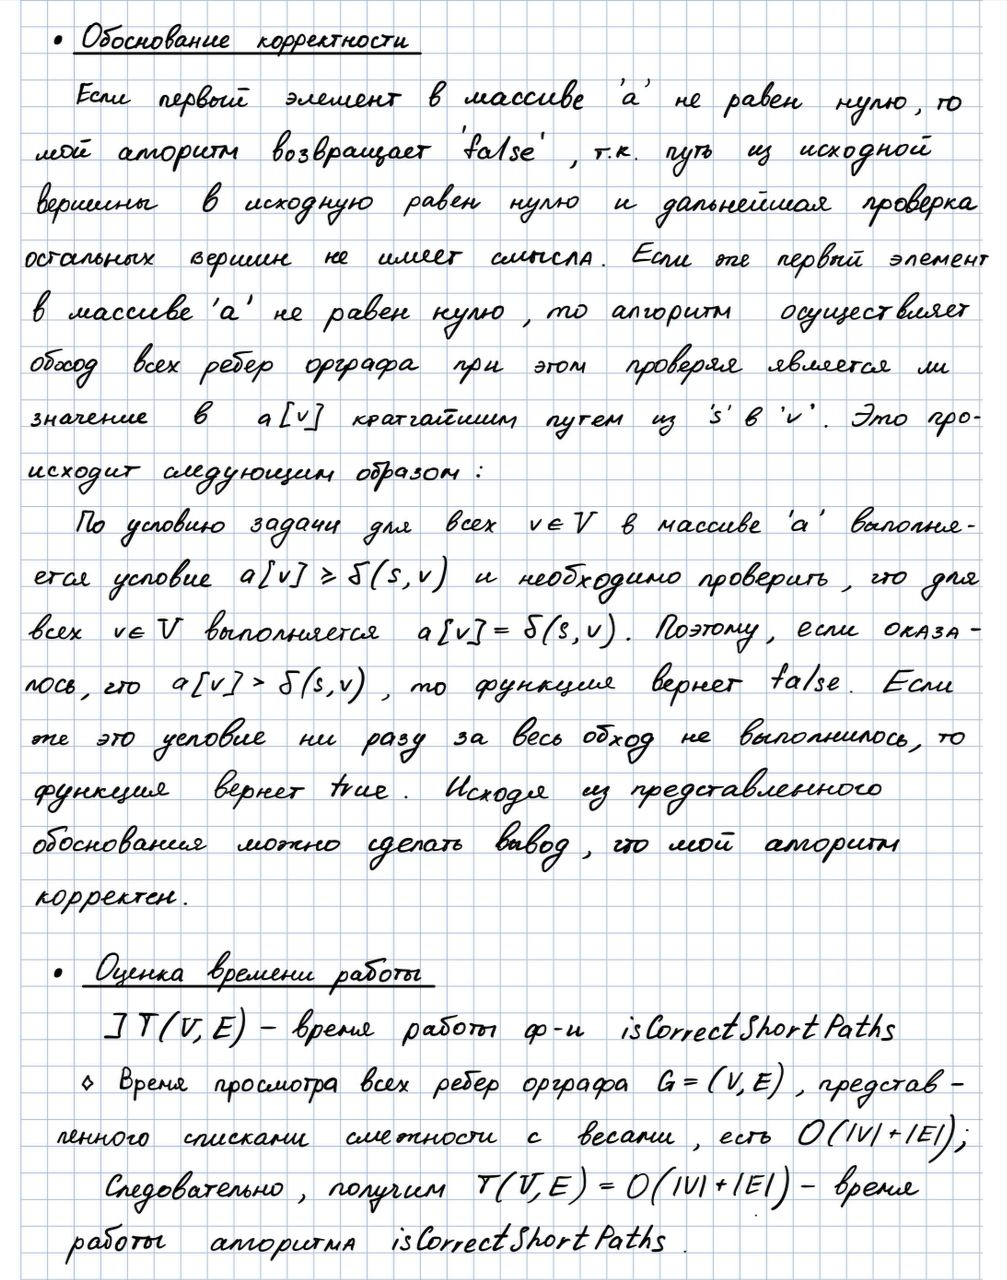 • Обоснование корректности
Если первый элемент в массиве 'a' не равен нулю, то
мой алгоритм возвращает 'false', т.к. путь из исходной
вершины в исходную равен нулю и дальнейшая проверка
остальных вершин не имеет смысла. Если же первый элемент
в массиве 'a' не равен нулю, то алгоритм осуществляет
обход всех ребер орграфа при этом проверяя является ли
значение в a[v] кратчайшим путем из 's' в 'v'. Это про-
исходит следующим образом:
По условию задачи для всех v ∈ V в массиве 'a' выполня-
ется условие a[v] ≥ δ(s,v) и необходимо проверить, что для
всех v ∈ V выполняется a[v] = δ(s,v). Поэтому, если оказа-
лось, что a[v] > δ(s,v), то функция вернет false. Если
же это условие ни разу за весь обход не выполнилось, то
функция вернет true. Исходя из представленного
обоснования можно сделать вывод, что мой алгоритм
корректен.
• Оценка времени работы
] T(V,E) – время работы ф-и isCorrectShortPaths
⋄ Время просмотра всех ребер орграфа G = (V,E), представ-
ленного списками смежности с весами, есть O(|V|+|E|);
Следовательно, получим T(V,E) = O(|V|+|E|) – время
работы алгоритма isCorrectShortPaths.